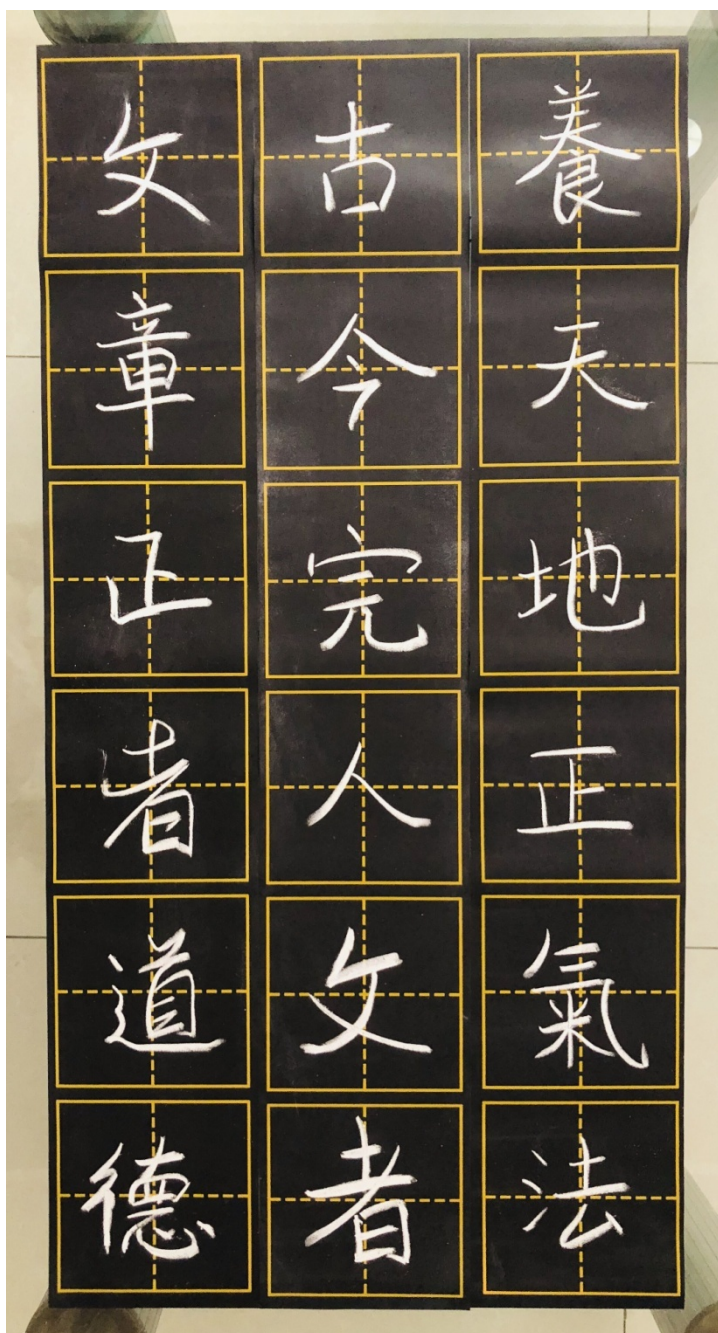 養天地正氣法
古今完人文者
文章正者道德